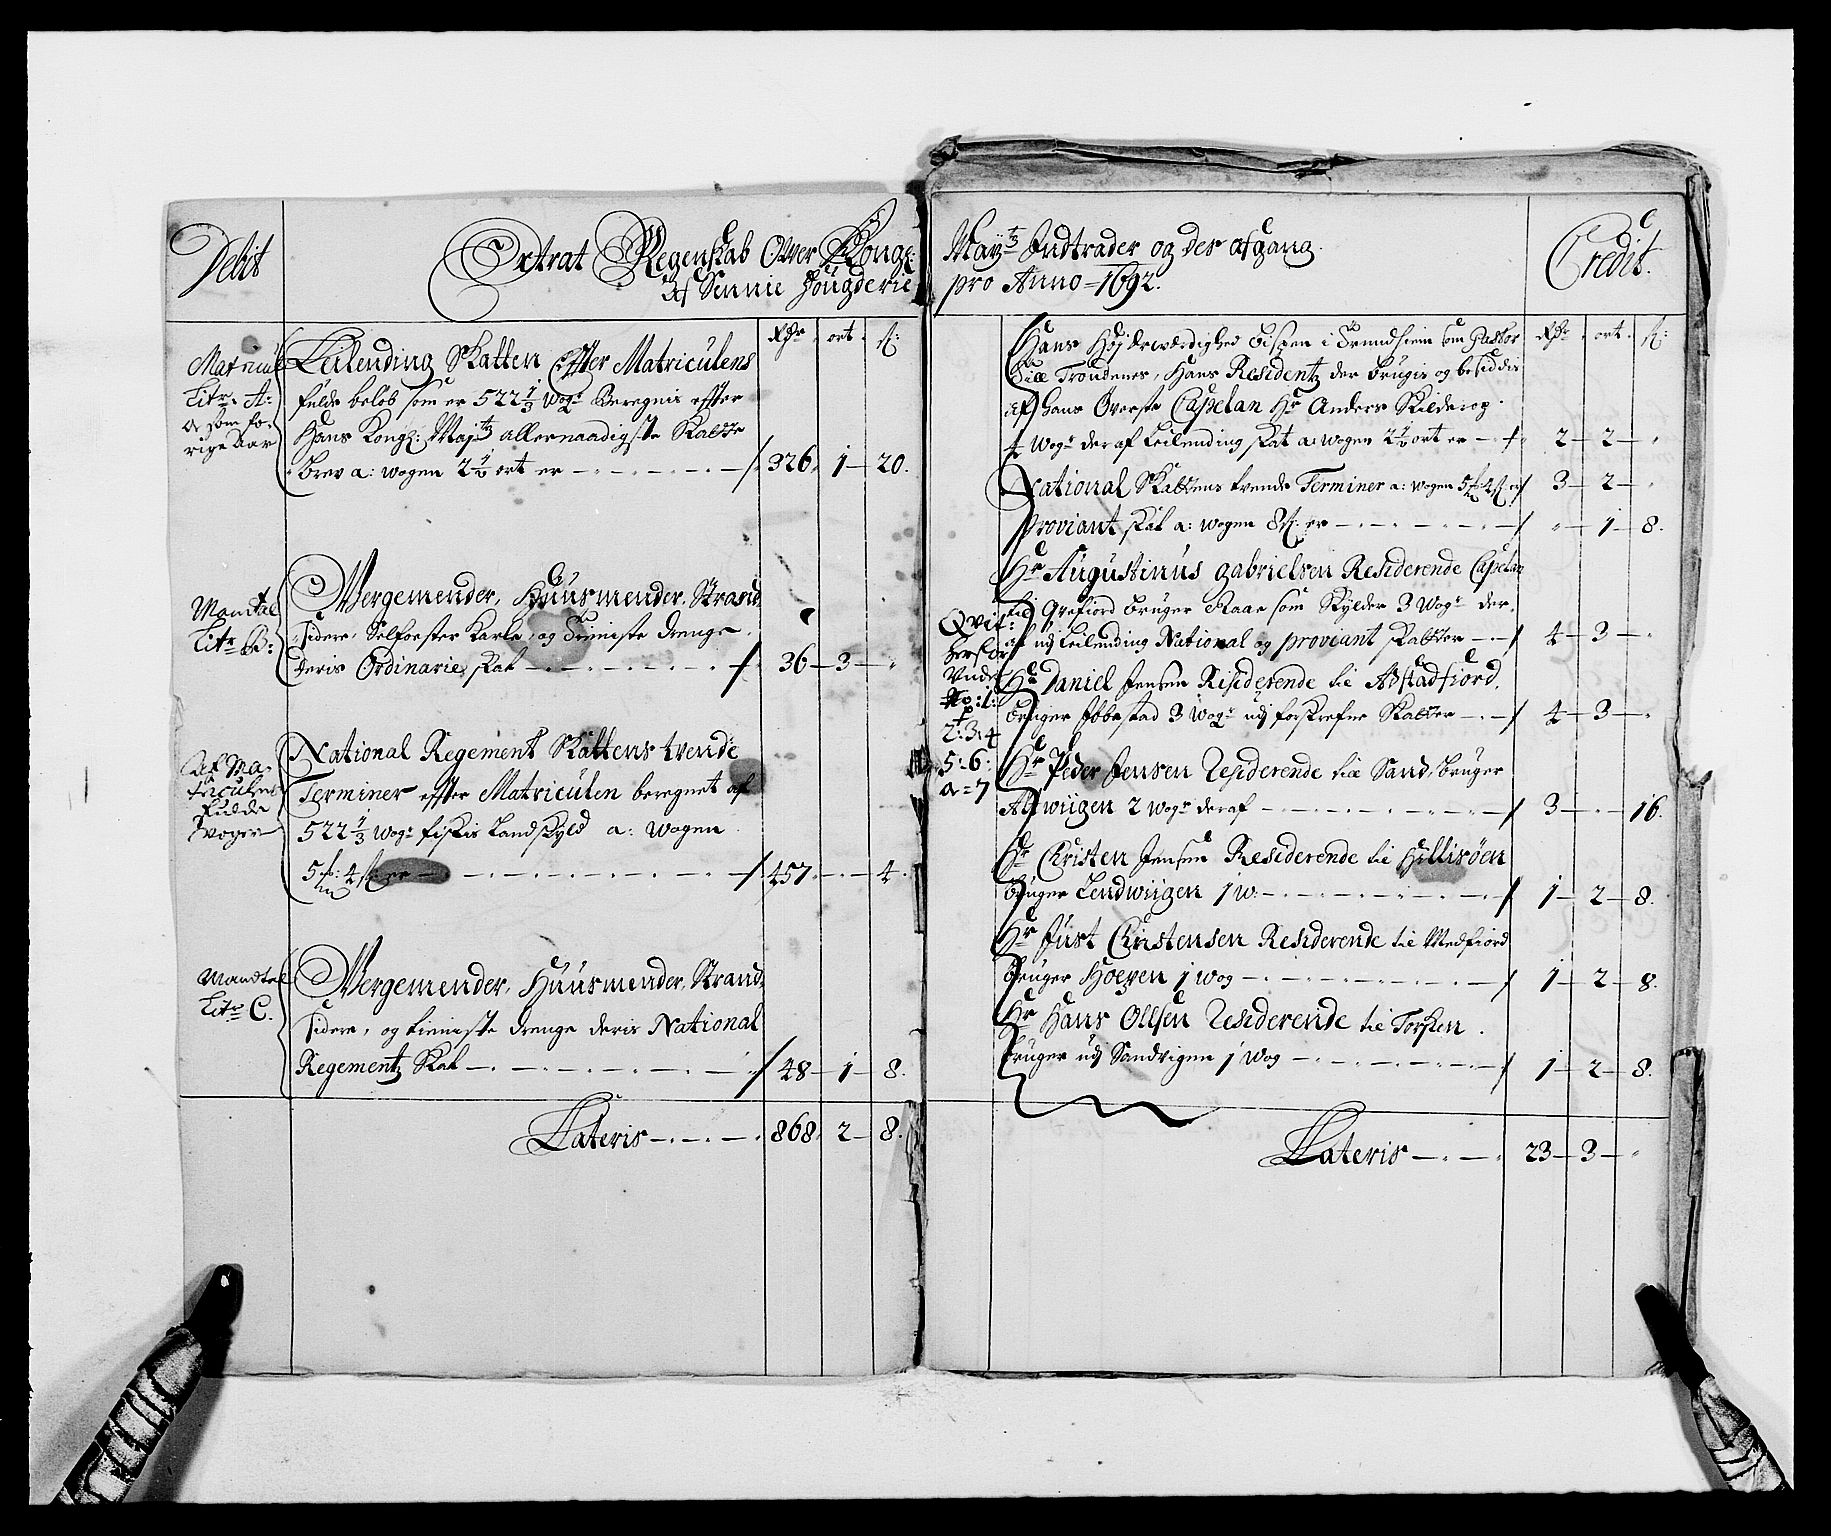 Debit
Extrat Regenskab Over Kongl:
Af Sennie Fougderie
Rdr ort s:
Matricul
Litr: A:
som fo-
rige aar
Leilending Skatten Efter Matriculens
fulde beløb som er 522 1/3 wogr Beregnis efter
Hans Kongl: Majts allernaadigste Skatte
brev a: wogen 2 1/2 ort er 326 1 20.
Mandtal
Litr B:
Wergemender, Huusmender, Strand
sidere, Selfoester Karle, og Tieniste drenge
deris Ordinarie skat 36 3 "
Af Ma-
triculens
Fulde
Woger
National Regement Skattens tvende
Terminer efter Matriculen beregnet af
522 1/3 wogr fiskis Landskyld a: wogen
5 mk: 4 s: er 457 " 4.
Mandtal
Litr C.
Wergemender, Huusmender, Strand-
sidere, og tieniste drenge deris National
Regementz Skat 48 1 8.
Lateris 868 2 8.
Mayts Indtrader og des afgang
pro Anno 1692.
Credit.
Rdr ort s:
Hans Højærværdighed bispen i Trundhiem som Pastor
till Trondenes, Hans Residentz der brugis og besiddis
af hans Øverste Cappelan Hr Anders Kilderop
wogr deraf Leilending skat a: wogen 2 1/2 ort er 2 2 "
National Skattens tvende Terminer a: wogen 5 mk: 4 s er 3 2 "
Proviant skat a: wogen 8 s: er " 1 8.
Hr Augustinus Gabrielsen Residerende Capelan
til Qvefiord bruger Raae som Skylder 3 Wogr der-
af udj Leilending National og Proviant Skatter 4 3 "
Qvit:
herfor
Under
No: 1:
2: 3: 4
5: 6:
a 7
Hr Daniel Jensen Residerende til Astadfiord,
bruger Ibbestad 3 wogr udj forskrefne Skatter 4 3 "
Hr Peder Jensen Residerende till Sand, bruger
Alfwiigen 2 wogr deraf 3 " 16.
Hr Christen Jensen Residerende til Hillisøen
bruger Lendwiigen 1 w: 1 2 8.
Hr Just Christensen Residerende til Medfiord
bruger Hoeyen 1 wog 1 2 8.
Hr Hans Ollsen Residerende til Torsken.
bruger udj Sandvigen 1 wog 1 2 8.
Lateris 23 3 "